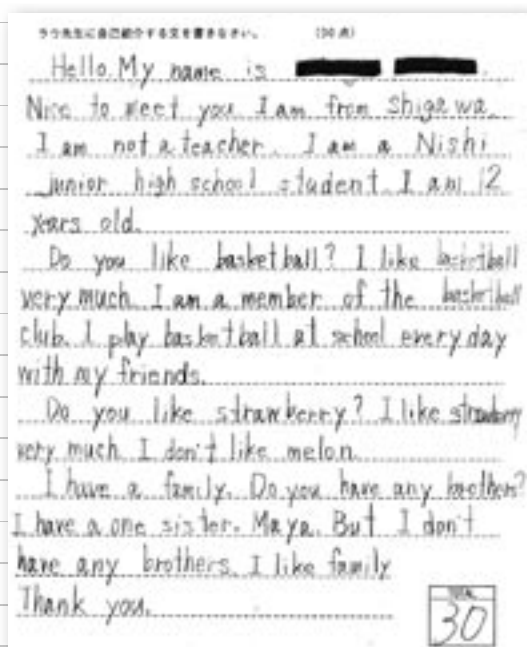 ラウ先生に自己紹介する文を書きなさい。 (30点)
Hello. My name is
Nice to meet you I am from Shigawa.
I am not a teacher. I am a Nishi
junior high school student I am 12
years old.
Do you like basketball? I like basketball
very much I am a member of the basketball
club. I play basketball at school every day
with my friends.
Do you like strawberry? I like strawberry
very much I don't like melon
I have a family. Do you have any brothers?
I have a one sister. Maya. But I don't
have any brothers. I like family
Thank you.
TOTAL
30